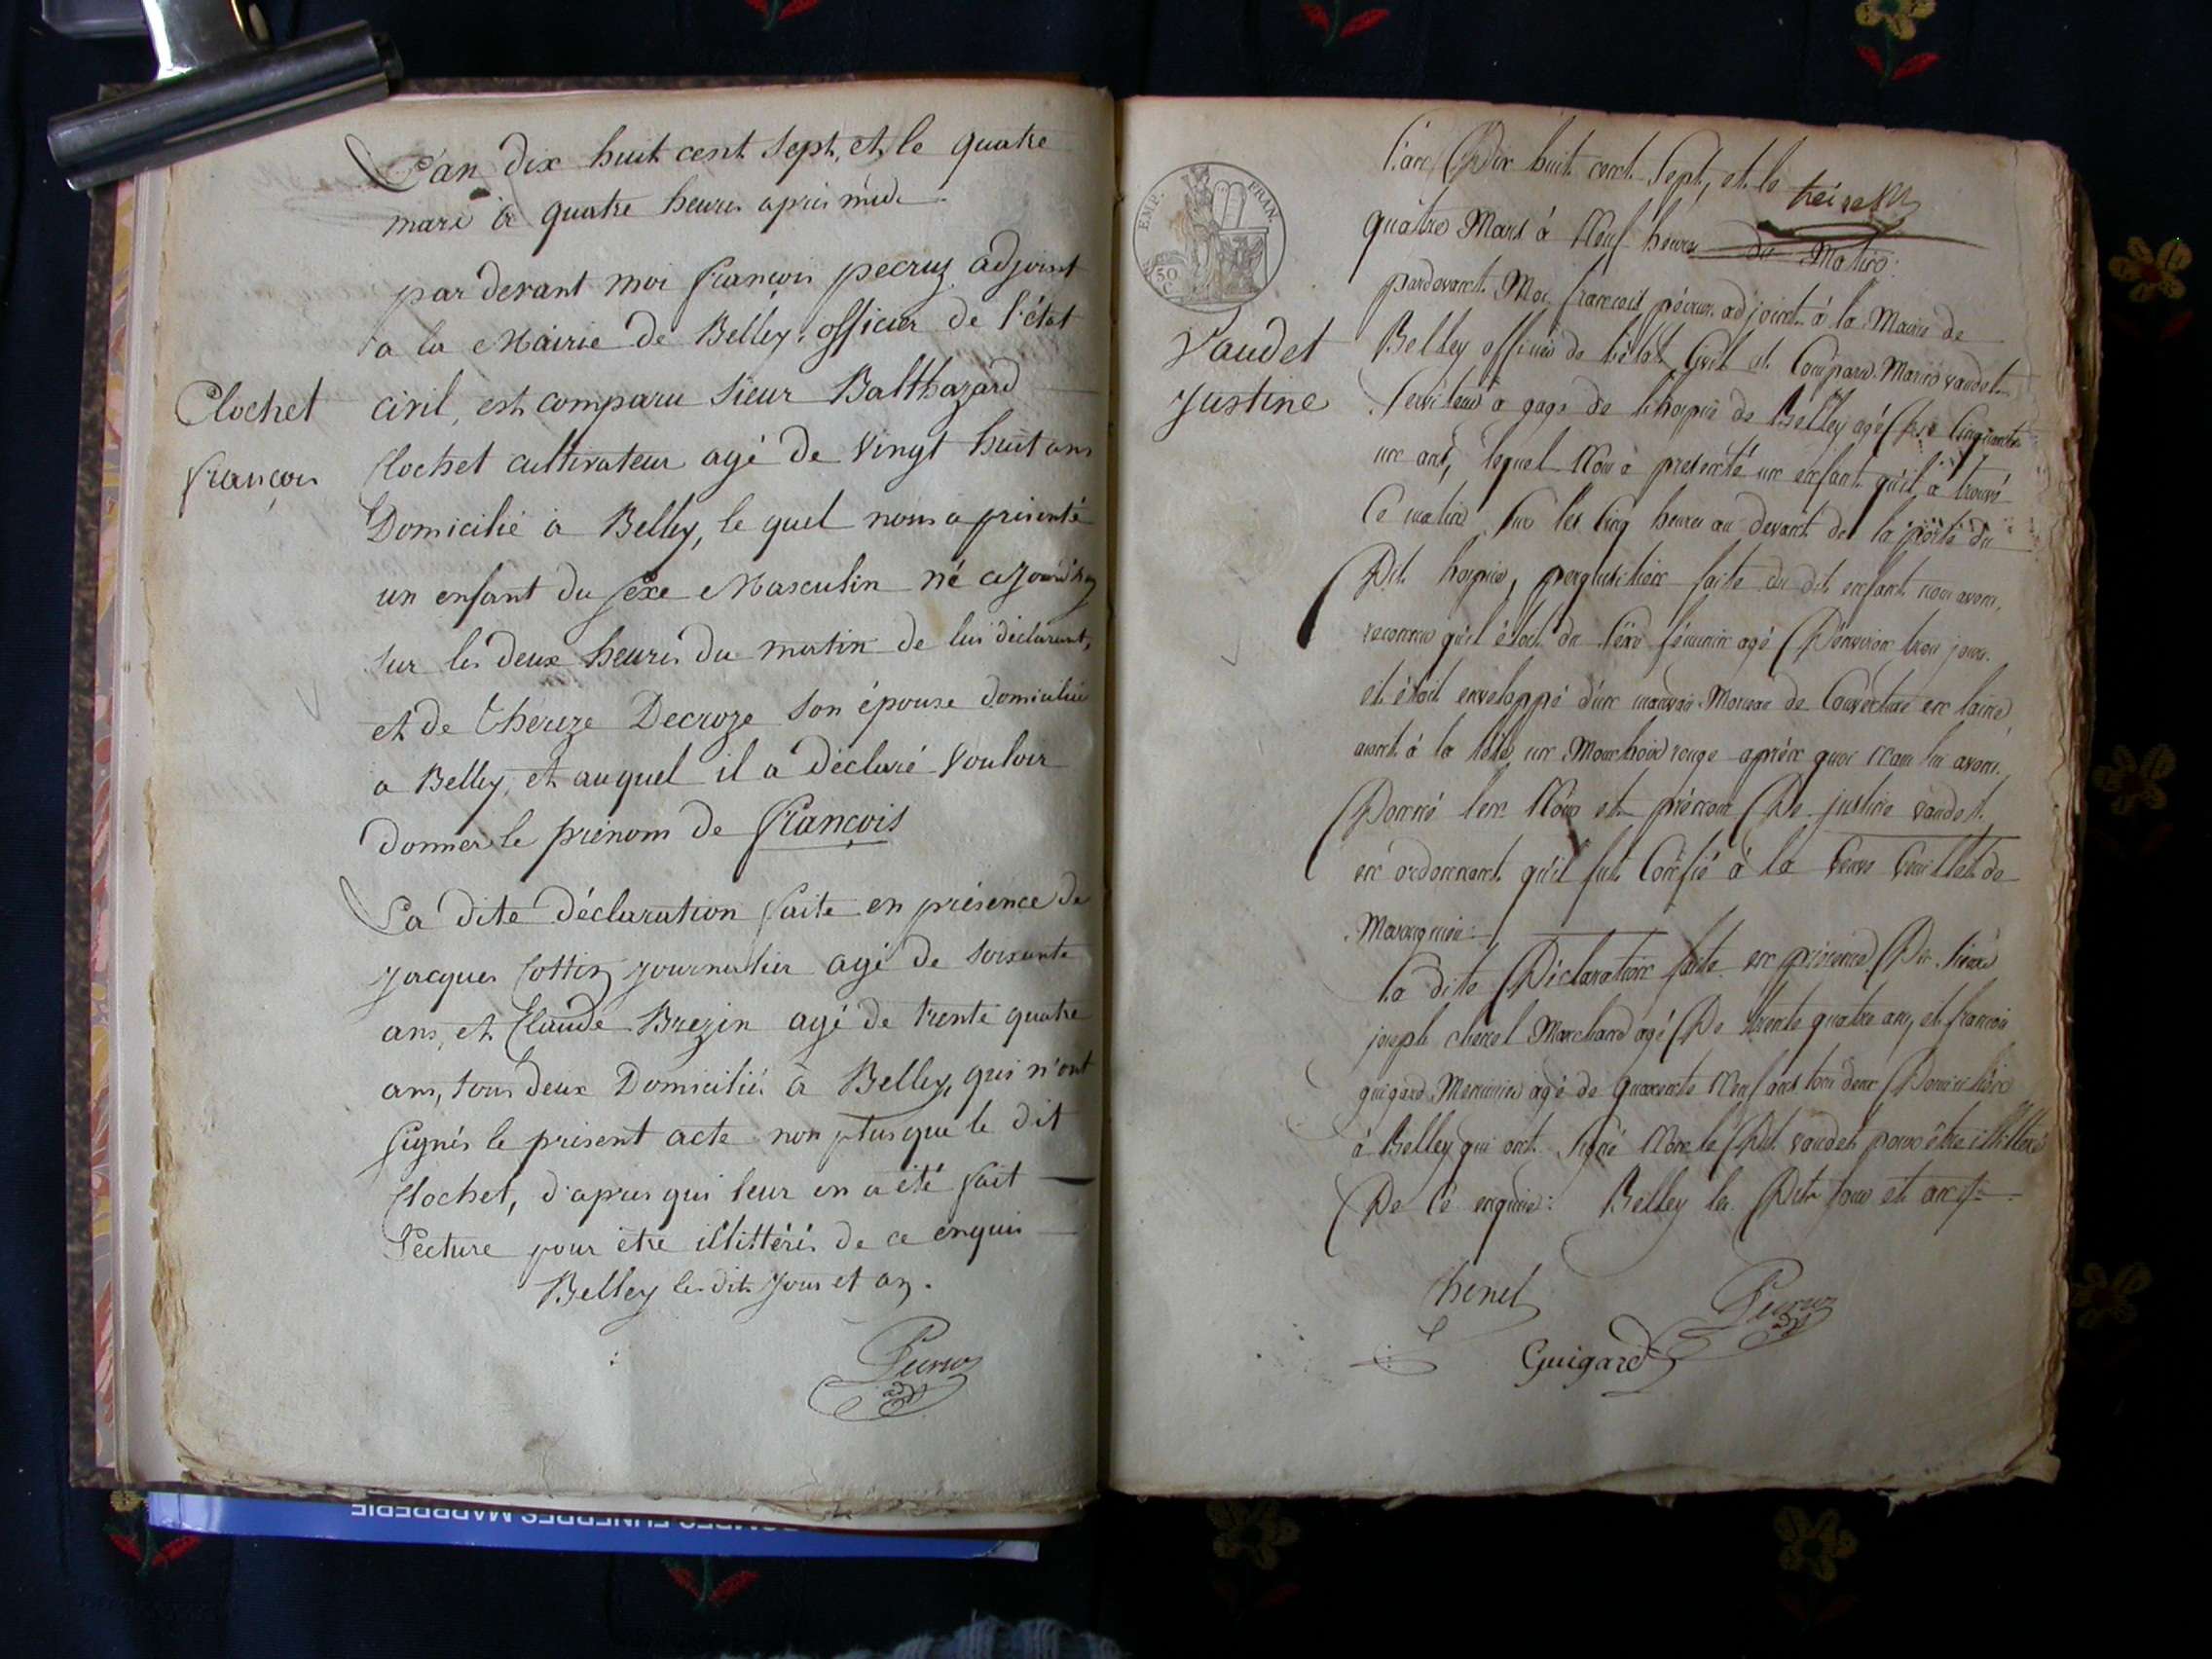 L'an dix huit cent sept, et le quatre
mars à quatre heures après midi
par devant moi françois pecruz adjoint
a la Mairie de Belley, officier de l'état
Clochet
civil, est comparu sieur Balthazard
françois
Clochet cultivateur agé de vingt huit ans
Domicilié à Belley, le quel nous a présenté
un enfant du sexe Masculin né cejourd'huy
sur les deux heures du matin de lui déclarant,
et de Thereze Decroze son épouse domiciliée
a Belley, et auquel il a déclaré vouloir
donner le prénom de françois
La dite déclaration faite en présence de
Jacques Cottin journalier agé de soixante
ans, et Claude Brezin agé de trente quatre
ans, tous deux Domiciliés à Belley, qui n'ont
signés le présent acte non plus que le dit
Clochet, d'après qui leur en a été fait
Lecture pour être illittérés de ce enquis
Belley les dits jour et an.
Pecruz
adjt
EMP. FRAN.
50 C
l'an Dix huit cent sept, et le
quatre Mars à Neuf heures du Matin
pardevant Moi françois pécruz adjoint à la Mairie de
Vaudet
Belley officier de l'état Civil est Comparu Marin vaudet
Justine
Serviteur à gage de l'hospice de Belley agé de Cinquante
un ans, lequel Nous à présenté un enfant qu'il à trouvé
Ce matin sur les Cinq heures au devant de la porte du
Dit hospice, perquisition faite du dit enfant nous avons
reconnu qu'il étoit du sexe féminin agé D'environ trois jours
et étoit enveloppé d'un mauvais Morceau de Couverture en laine
aiant à la tête un Mouchoir rouge après quoi nous lui avons
Donné les Nom et prénom De justine vaudet
en ordonnant qu'il fut Confié à la veuve de
la dite Déclaration faite en présence Du sieur
joseph chenel Marchand agé De trente quatre ans, et françois
guigard Menuisier agé de quarante Neuf ans tous deux Domiciliés
à Belley qui ont signé Non le Dit vaudet pour être illittéré
De Ce enquis: Belley les Dits jour et an
Chenel
Pecruz
adjt
Guigard
POMPES FUNEBRES MARBRERIE